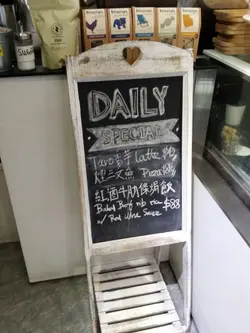 DAILY
SPECIAL
Taro 芋 Latte
煙三文魚 Pizza
紅酒牛肋條焗飯
Baked Beef rib rice
w/ Red Wine Sauce $88